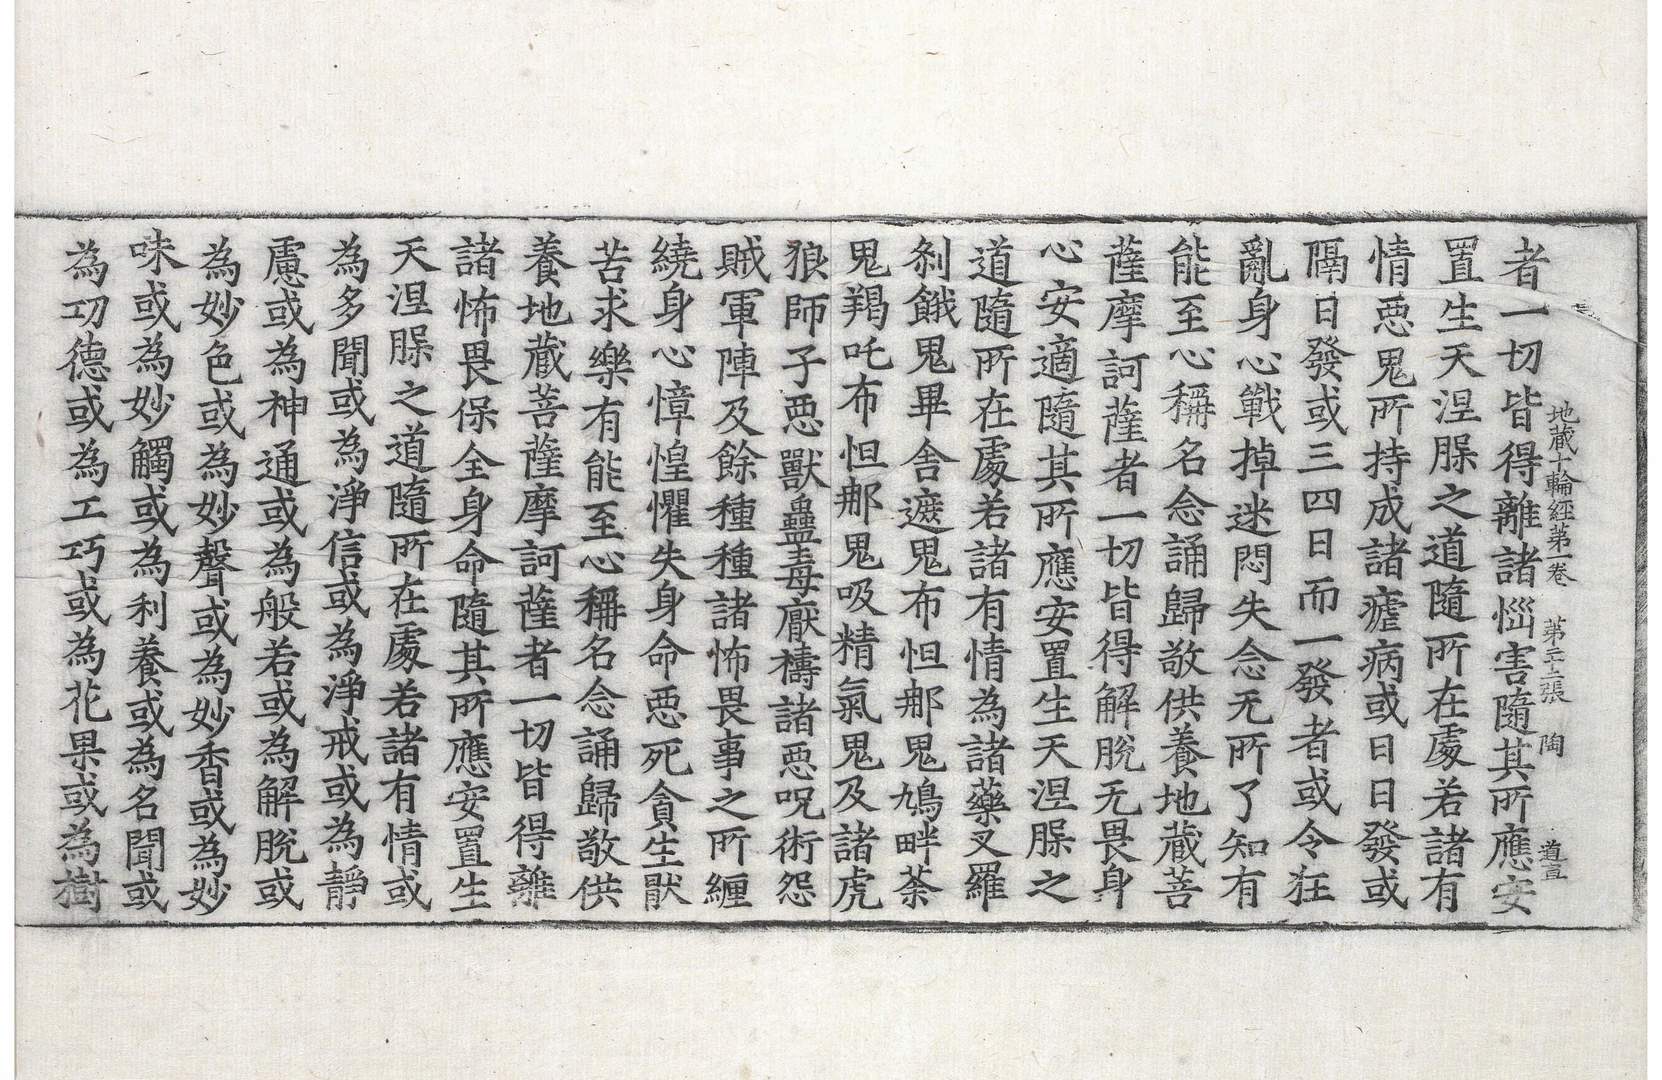 地藏十輪經第一卷 第二十二張 陶 道言
者一切皆得離諸惱害隨其所應安
置生天涅槃之道隨所在處若諸有
情惡鬼所持成諸瘧病或日日發或
隔日發或三四日而一發者或令狂
亂身心戰掉迷悶失念无所了知有
能至心稱名念誦歸敬供養地藏菩
薩摩訶薩者一切皆得解脫无畏身
心安適隨其所應安置生天涅槃之
道隨所在處若諸有情為諸藥叉羅
剎餓鬼畢舍遮鬼布怛那鬼鳩畔荼
鬼羯吒布怛那鬼吸精氣鬼及諸虎
狼師子惡獸蠱毒厭禱諸惡呪術怨
賊軍陣及餘種種諸怖畏事之所纏
繞身心慞惶懼失身命惡死貪生猒
苦求樂有能至心稱名念誦歸敬供
養地藏菩薩摩訶薩者一切皆得離
諸怖畏保全身命隨其所應安置生
天涅槃之道隨所在處若諸有情或
為多聞或為淨信或為淨戒或為靜
慮或為神通或為般若或為解脫或
為妙色或為妙聲或為妙香或為妙
味或為妙觸或為利養或為名聞或
為功德或為工巧或為花果或為樹